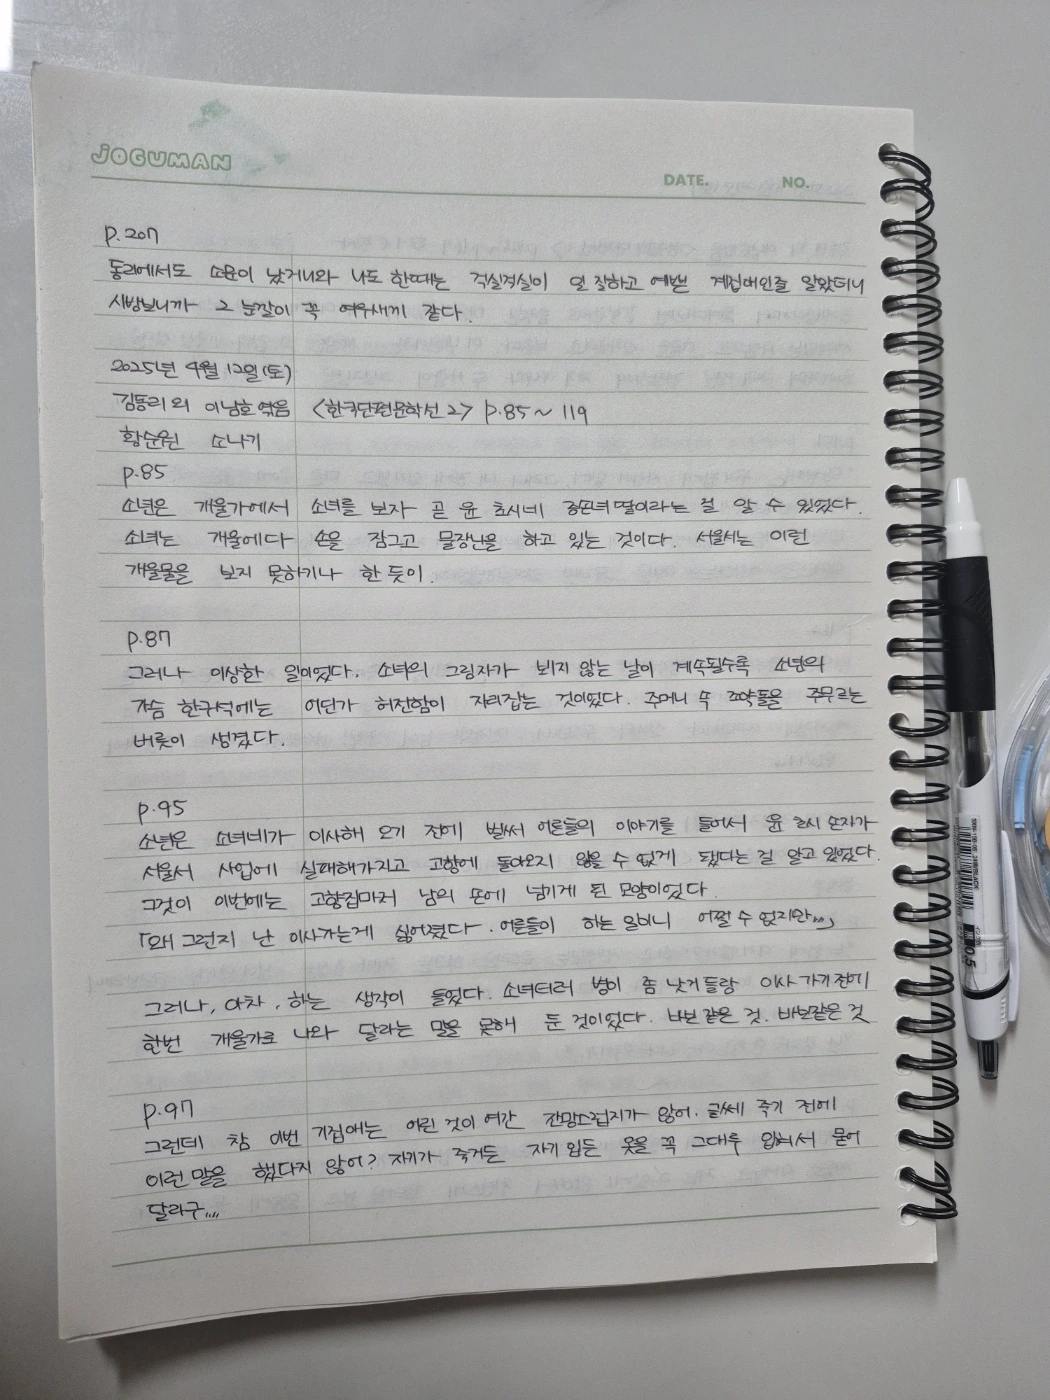 JOGUMAN
DATE. NO.
p.207
동리에서도 소문이 났거니와 나도 한때는 걱실걱실이 일 잘하고 예쁜 계집애인줄 알았더니
시방보니까 그 눈깔이 꼭 여우새끼 같다.
2025년 4월 12일(토)
김동리 외 이남호 엮음 <한국단편문학선 2> p.85~119
황순원 소나기
p.85
소년은 개울가에서 소녀를 보자 곧 윤 초시네 증손녀딸이라는 걸 알 수 있었다.
소녀는 개울에다 손을 잠그고 물장난을 하고 있는 것이다. 서울서는 이런
개울물을 보지 못하기나 한 듯이.
p.87
그러나 이상한 일이었다. 소녀의 그림자가 뵈지 않는 날이 계속될수록 소년의
가슴 한구석에는 어딘가 허전함이 자리잡는 것이었다. 주머니 속 조약돌을 주무르는
버릇이 생겼다.
p.95
소년은 소녀네가 이사해 오기 전에 벌써 어른들의 이야기를 들어서 윤 초시 손자가
서울서 사업에 실패해가지고 고향에 돌아오지 않을 수 없게 됐다는 걸 알고 있었다.
그것이 이번에는 고향집마저 남의 손에 넘기게 된 모양이었다.
「왜 그런지 난 이사가는게 싫어졌다. 어른들이 하는 일이니 어쩔 수 없지만,,,」
그러나, 아차, 하는 생각이 들었다. 소녀더러 병이 좀 낫거들랑 이사 가기 전에
한번 개울가로 나와 달라는 말을 못해 둔 것이었다. 바보 같은 것. 바보같은 것
p.97
그런데 참 이번 기집애는 어린 것이 여간 잔망스럽지가 않어. 글쎄 죽기 전에
이런 말을 했다지 않어? 자기가 죽거든 자기 입든 옷을 꼭 그대루 입혀서 묻어
달라구,,,,
0.5